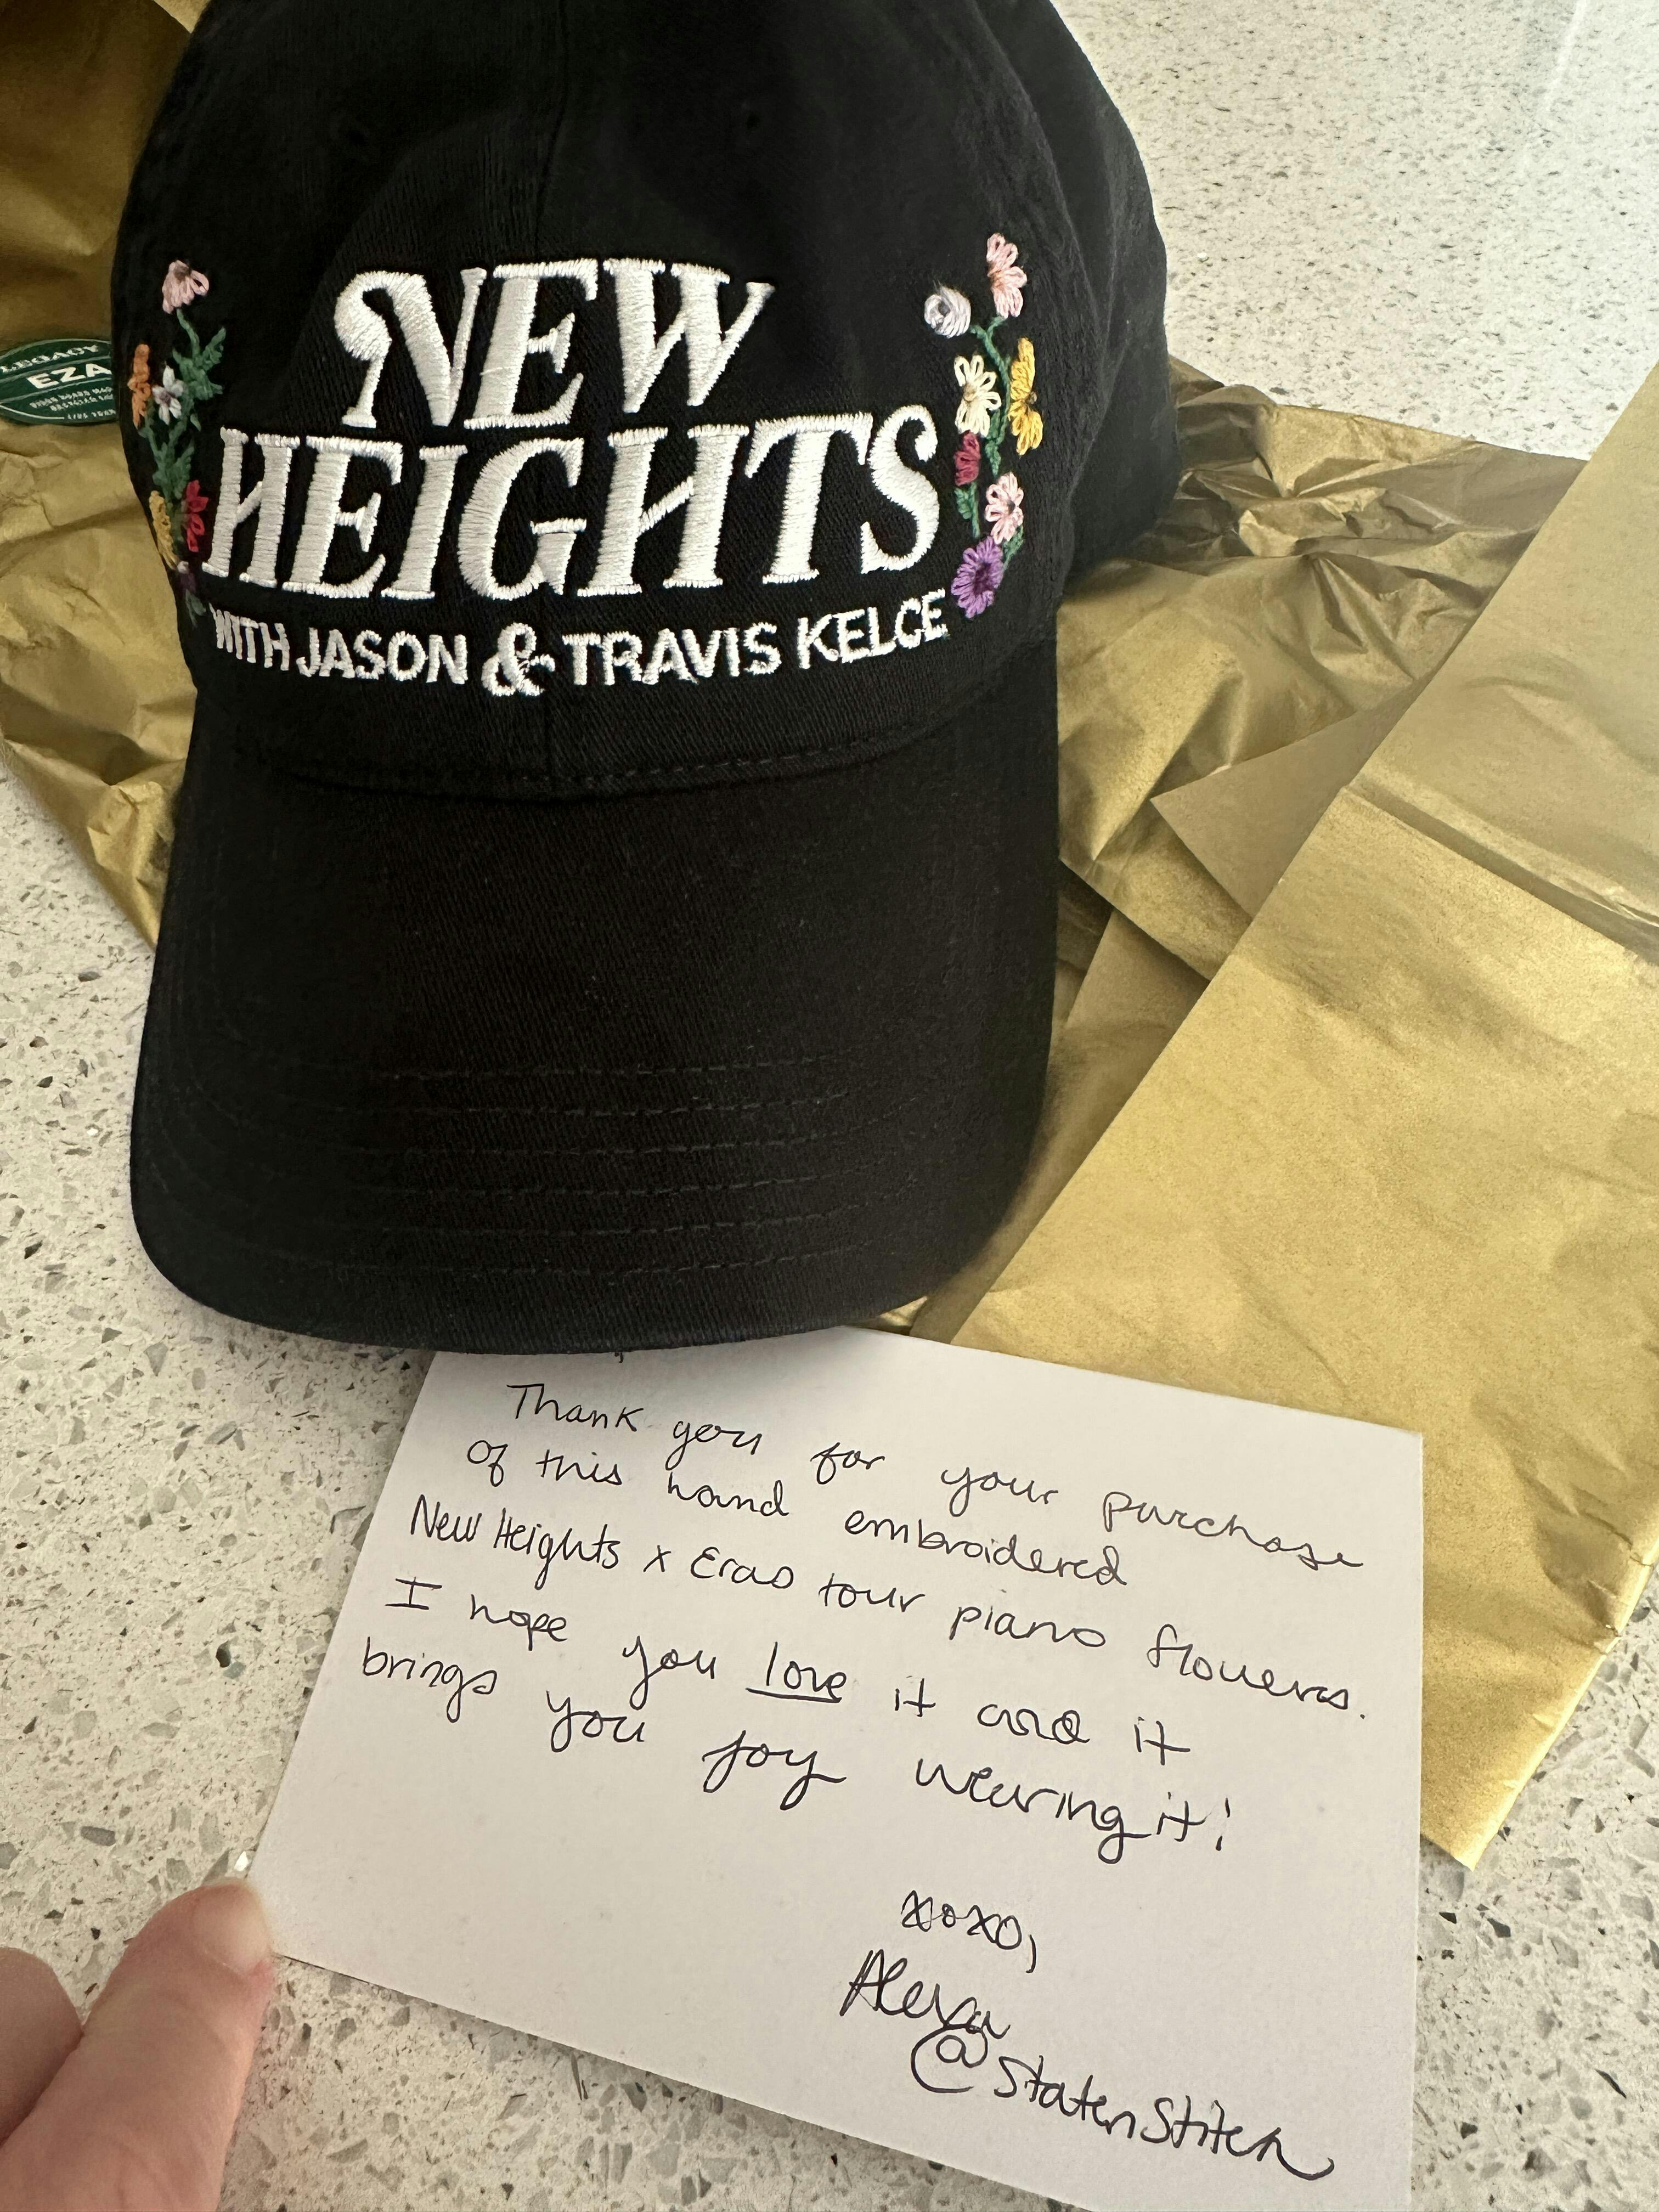 NEW
HEIGHTS
WITH JASON & TRAVIS KELCE
LEGACY
EZA
Thank you for your purchase
of this hand embroidered
New Heights x Eras tour piano flowers.
I hope you love it and it
brings you joy wearing it!
xoxo,
Alexa
@StatenStitch